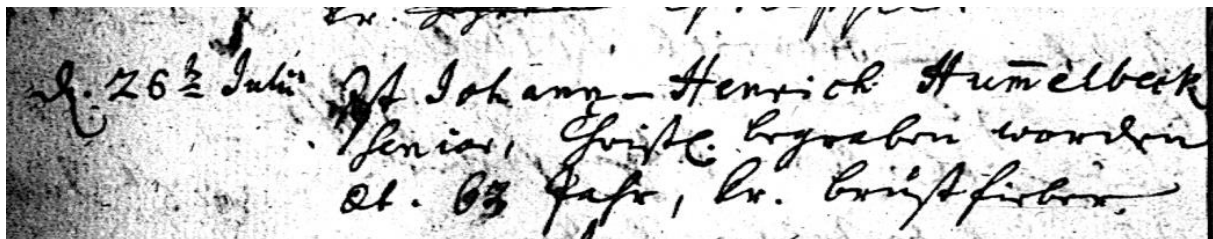 kr.
d. 26t Julii Ist Johann-Henrich Hum̄elbeck
Senior, Christl. begraben worden
æt. 63 Jahr, kr. brustfieber.